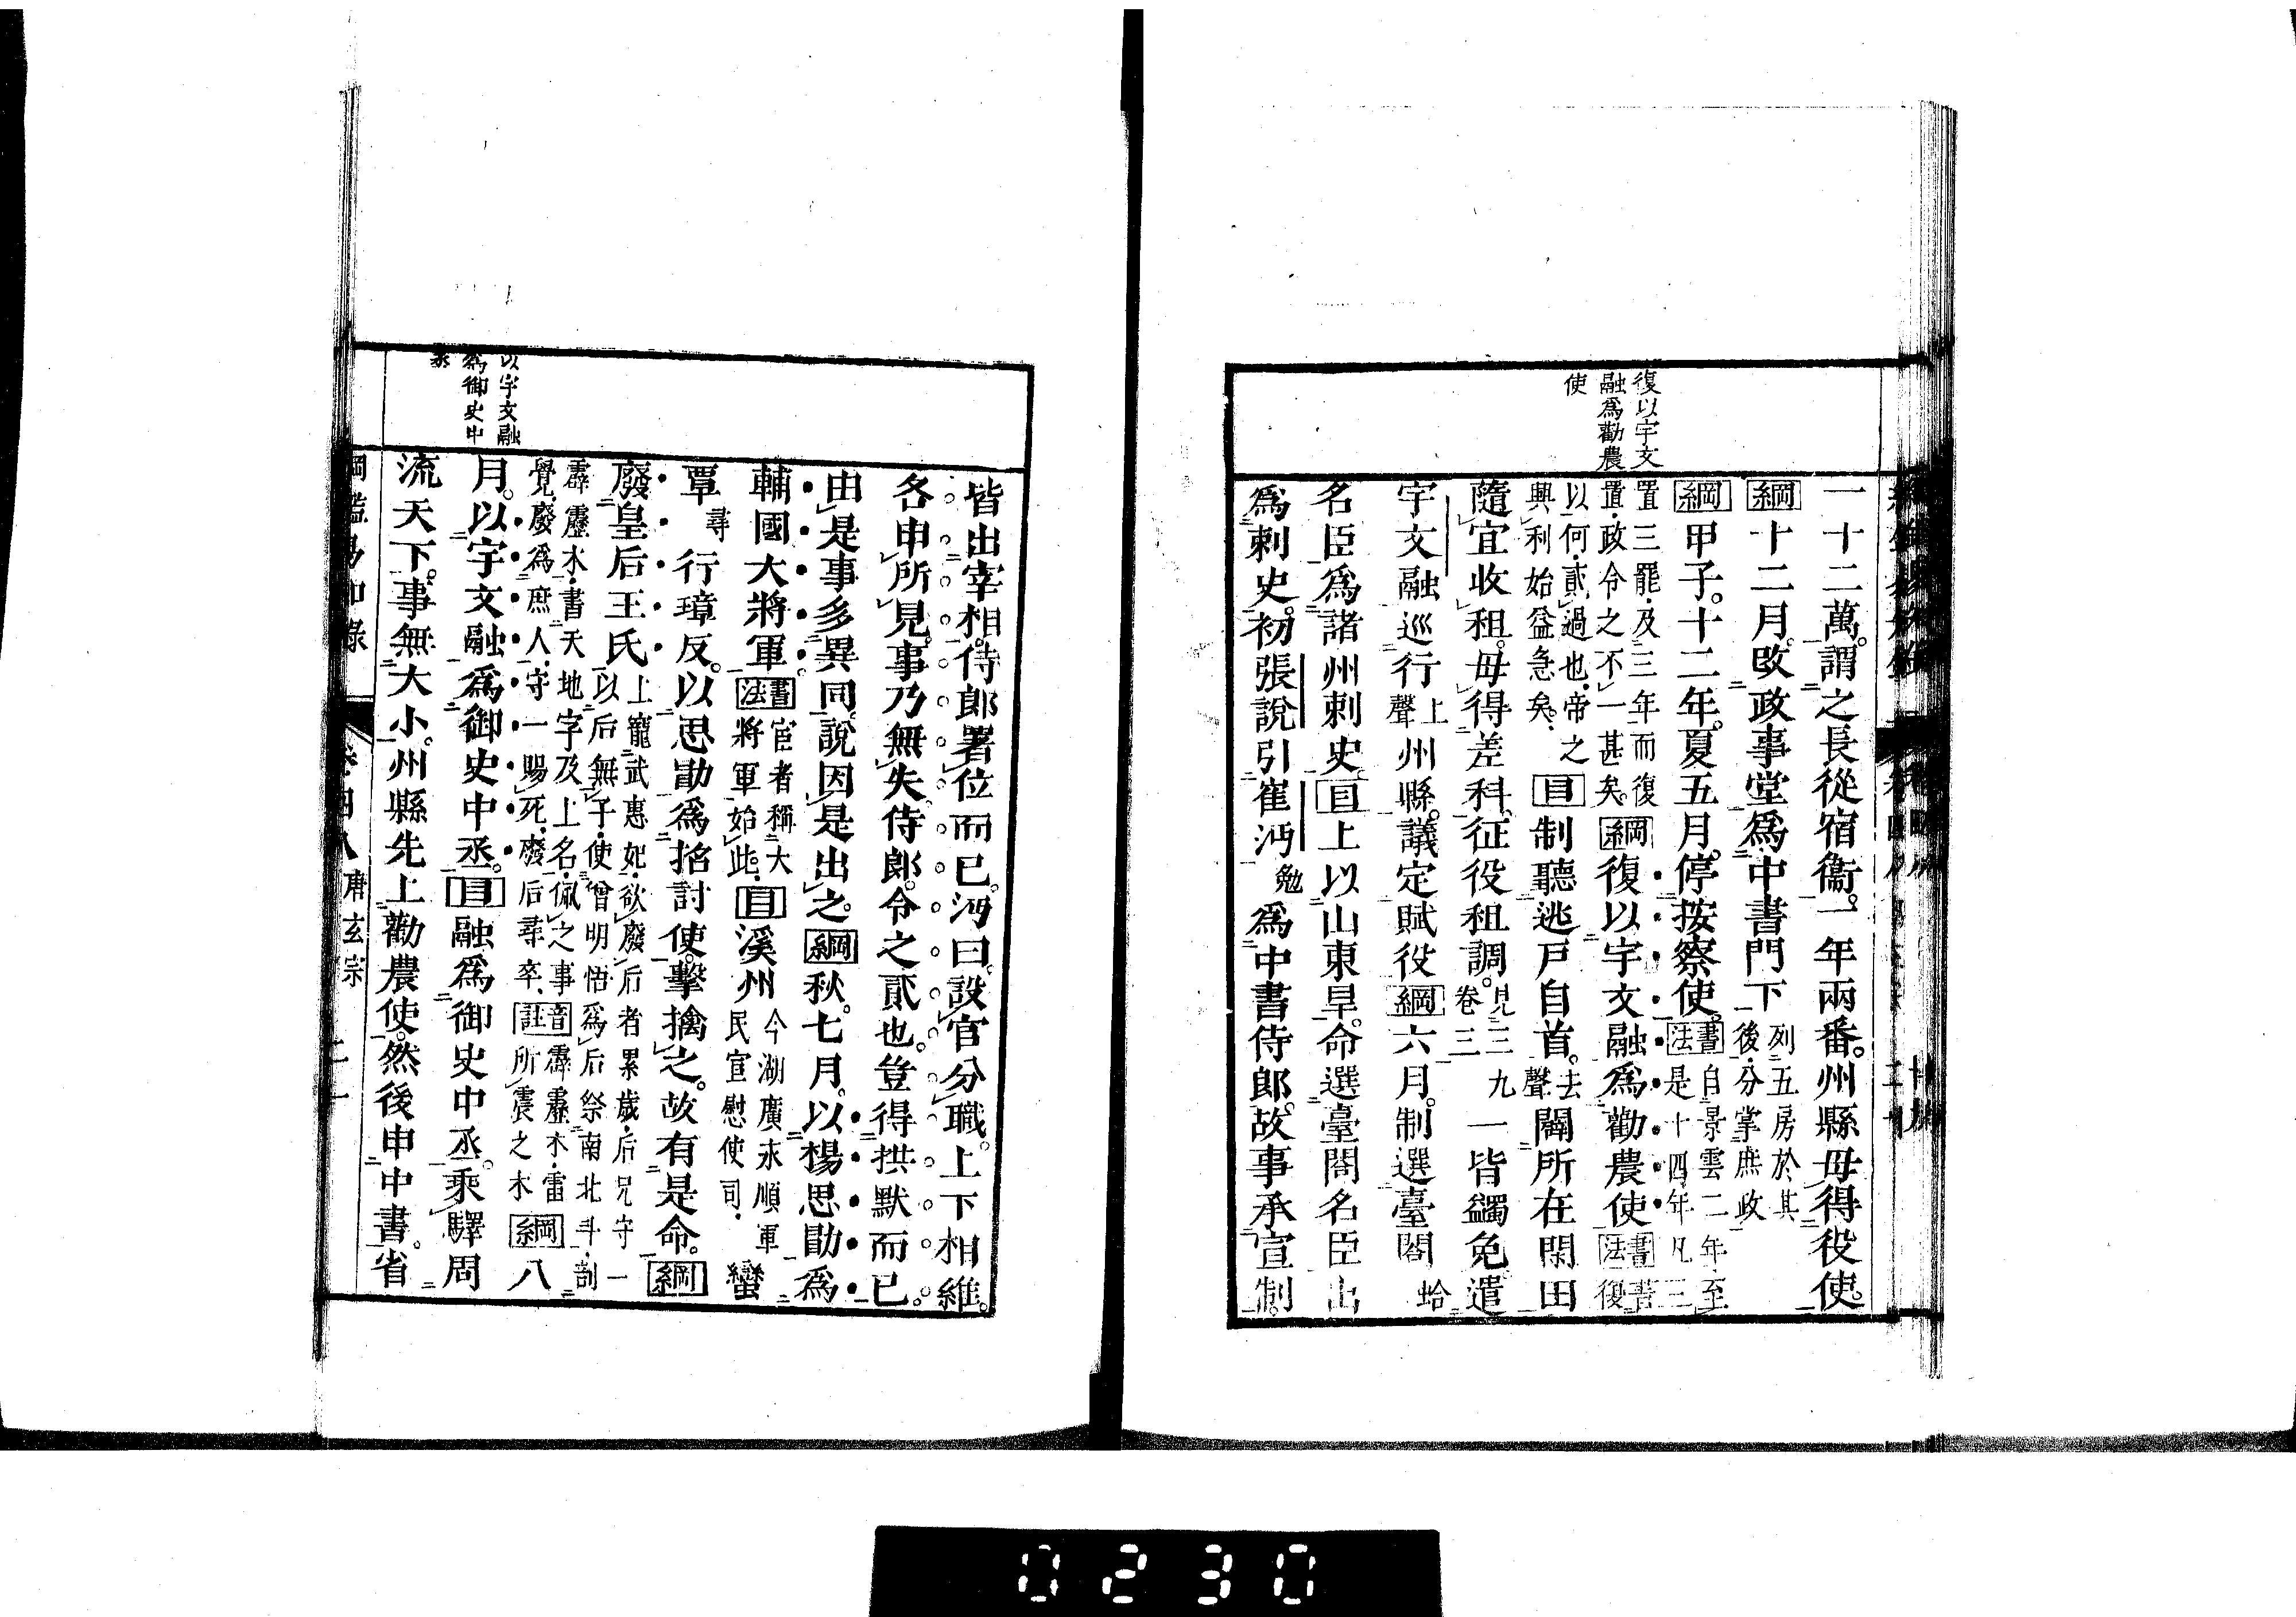 復以宇文
融爲勸農
使
一十二萬。謂之長從宿衞。一年兩番。州縣毋得役使。
綱十二月。改政事堂爲中書門下列五房於其後分掌庶政
綱甲子。十二年。夏五月。停按察使。書法自景雲二年至是十四年凡三
置三罷及三年而復置政令之不一甚矣。綱復以宇文融爲勸農使書法書復
以何貳過也帝之興利始益急矣。目制聽逃戸自首。去聲闢所在閑田
隨宜收租。毋得差科。征役租調。見三九卷三一皆蠲免。遣
宇文融巡行上聲州縣。議定賦役綱六月。制選臺閣蛤
名臣爲諸州刺史。目上以山東旱。命選臺閣名臣出
爲刺史。初張說引崔沔勉爲中書侍郎。故事承宣制
皆出宰相。侍郎署位而已。沔曰。設官分職。上下相維。
各申所見。事乃無失。侍郎。令之貳也。豈得拱默而已。
由是事多異同。說因是出之。綱秋。七月。以楊思勖爲
輔國大將軍書法宦者稱大將軍始此。目溪州今湖廣永順軍民宣慰使司蠻
覃尋行璋反。以思勖爲招討使。擊擒之。故有是命。綱
廢皇后王氏上寵武惠妃欲廢后者累歲后兄守一以后無子使僧明悟爲后祭南北斗剖
霹靂木書天地字及上名佩之事覺廢爲庶人守一賜死廢后尋卒音註霹靂木雷所震之木綱八
月。以宇文融爲御史中丞。目融爲御史中丞。乘驛周
流天下。事無大小。州縣先上勸農使。然後申中書。省
以宇文融
爲御史中
丞
綱鑑易知錄 卷四八 唐玄宗 二十一
0230